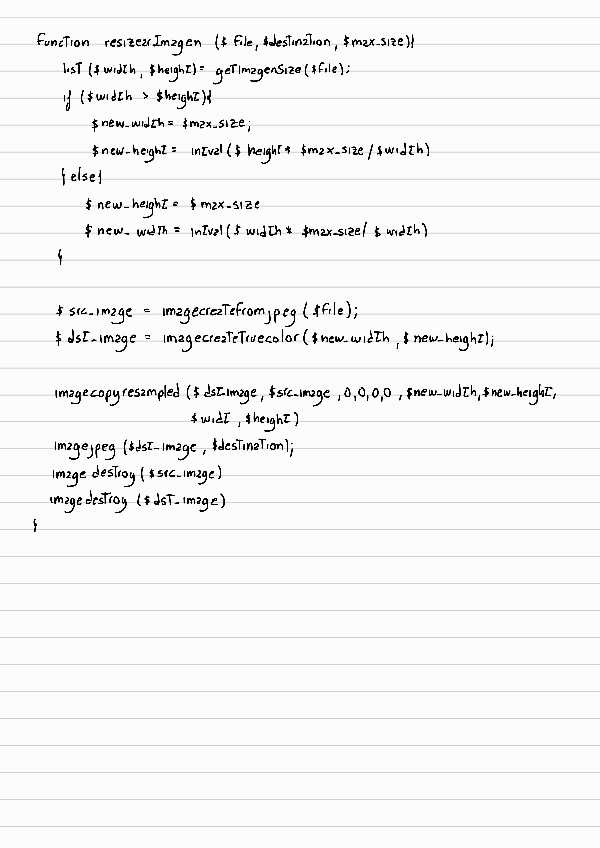 function resizearImagen ($ file, $destination, $max_size){
list ($width, $height) = getImagenSize($file);
if ($width > $height){
$new_width = $max_size;
$new_height = intval($ height * $max_size / $width)
} else {
$ new_height = $ max_size
$ new_width = intval($ width * $max_size / $ width)
}
$ src_image = imagecreatefromjpeg ($file);
$ dst_image = imagecreateTruecolor($new_width, $new_height);
imagecopyresampled ($ dst_image, $src_image, 0,0,0,0, $new_width, $new_height,
$ widt, $height)
imagejpeg ($dst_image, $destination);
image destroy ($src_image)
imagedestroy ($ dst_image)
}